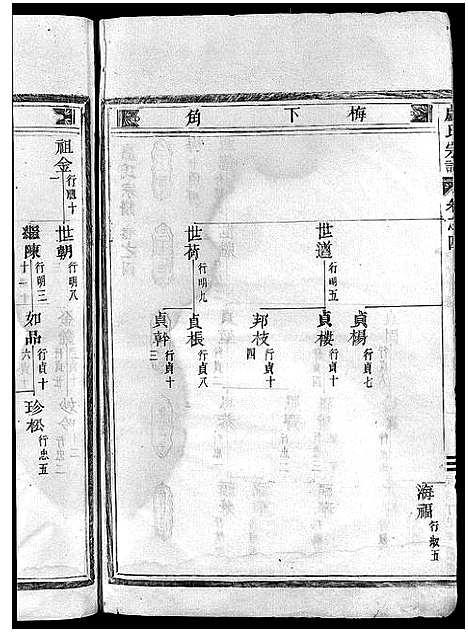 盧氏宗譜 卷之四
梅下角
海福 行淑五
世遒 行明五
貞楊 行貞七
貞樓 行貞十
邦枝 行貞十四
世荷 行明九
貞棖 行貞八
貞幹 行貞十三
祖金 行瓰十一
世朝 行明八
繼陳 行明三十
如品 行貞十六
珍松 行忠五